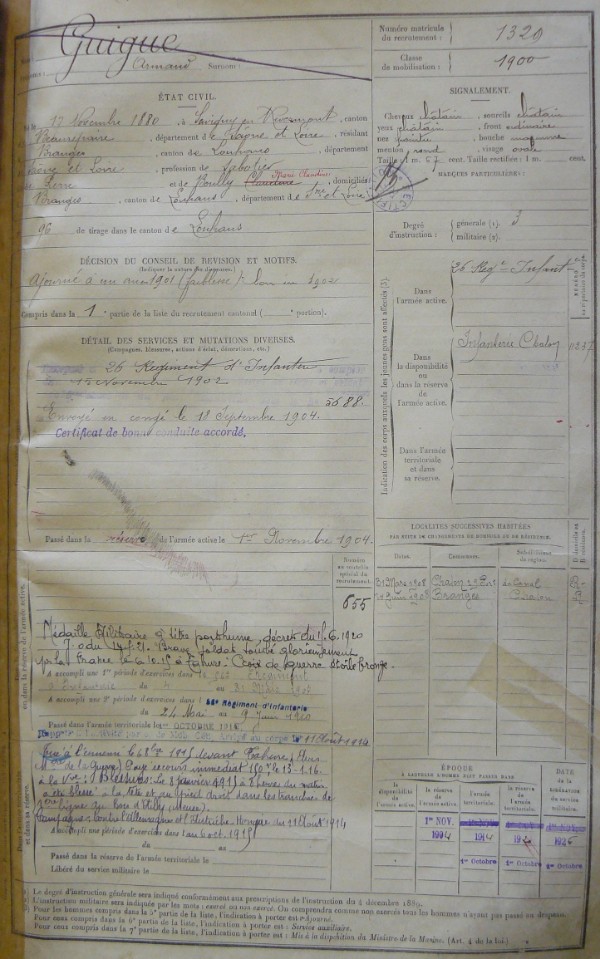 Guigue
Armand Surnoms :
Numéro matricule du recrutement : 1329
Classe de mobilisation : 1900
ÉTAT CIVIL.
Né le 17 Novembre 1880, à Savigny en Revermont, canton
Beaurepaire, département de Saône et Loire, résidant
Branges, canton de Louhans, département
Saône et Loire, profession de Sabotier
de Pierre et de Bouilly Claudine Marie Claudine, domiciliés
Branges, canton de Louhans, département de Sne et Loire
96 de tirage dans le canton de Louhans
SIGNALEMENT.
Cheveux chatain, sourcils chatain
yeux chatain, front ordinaire
nez pointu, bouche moyenne
menton rond, visage ovale
Taille : 1 m. 57 cent. Taille rectifiée : 1 m. cent.
MARQUES PARTICULIÈRES :
Degré d'instruction : générale (1). 3
militaire (2).
DÉCISION DU CONSEIL DE RÉVISION ET MOTIFS.
(Indiquer la nature des dispenses.)
Ajourné à un an 1901 (faiblesse) Bon en 1902
Compris dans la 1e partie de la liste du recrutement cantonal ( portion).
DÉTAIL DES SERVICES ET MUTATIONS DIVERSES.
(Campagnes, blessures, actions d'éclat, décorations, etc.)
26 Régiment d'Infanterie
15 Novembre 1902
5688
Envoyé en congé le 18 Septembre 1904.
Certificat de bonne conduite accordé.
Passé dans la réserve de l'armée active le 1er Novembre 1904.
Indication des corps auxquels les jeunes gens sont affectés (3)
Dans l'armée active.
26 Régt Infant
Dans la disponibilité ou dans la réserve de l'armée active.
Infanterie Chalon
Dans l'armée territoriale et dans sa réserve.
LOCALITÉS SUCCESSIVES HABITÉES
PAR SUITE DE CHANGEMENTS DE DOMICILE OU DE RÉSIDENCE.
Dates. Communes. Subdivisions de région. D. domicile ou R. résidence.
Mars 1908
Juin 1908 Branges
Numéro au contrôle spécial du recrutement.
655
Médaille Militaire à titre posthume, décret du
Brave soldat tombé glorieusement
pour la France le 6.10.15 à Tahure. Croix de guerre étoile bronze.
A accompli une 1re période d'exercices dans le Régiment
d'Infanterie du au Mars 1908
A accompli une 2e période d'exercices dans le Régiment d'Infanterie
du 24 Mai au 9 Juin 1910
Passé dans l'armée territoriale le 1er OCTOBRE 1914
Arrivé au corps le 11 Août 1914
Tué à l'ennemi le 6 8bre 1915 devant Tahure
Payé secours immédiat 150f le 13-1-16
à la Vve. Blessures : Le 3 janvier 1915 à 8 heures du matin
a été blessé à la tête et au pied droit dans les tranchées de
1ère ligne au bois d'Ailly (Meuse).
Campagne contre l'Allemagne et l'Autriche-Hongrie du 11 Août 1914
au 6 oct. 1915
A accompli une période d'exercices dans
du au
Passé dans la réserve de l'armée territoriale le
Libéré du service militaire le
ÉPOQUE
À LAQUELLE L'HOMME DOIT PASSER DANS
la disponibilité de l'armée active. la réserve de l'armée active. l'armée territoriale. la réserve de l'armée territoriale. DATE de la LIBÉRATION du service militaire.
1er NOV. 1904 1914 1926
1er Octobre 1er Octobre 1er Octobre
Le degré d'instruction générale sera indiqué conformément aux prescriptions de l'instruction du 4 décembre 1889.
L'instruction militaire sera indiquée par les mots : exercé ou non exercé. On comprendra comme non exercés tous les hommes n'ayant pas passé un drapeau.
Pour les hommes compris dans la 5e partie de la liste, l'indication à porter est : Ajourné.
Pour ceux compris dans la 6e partie de la liste, l'indication à porter est : Service auxiliaire.
Pour ceux compris dans la 7e partie de la liste, l'indication à porter est : Mis à la disposition du Ministre de la Marine. (Art. 4 de la loi.)